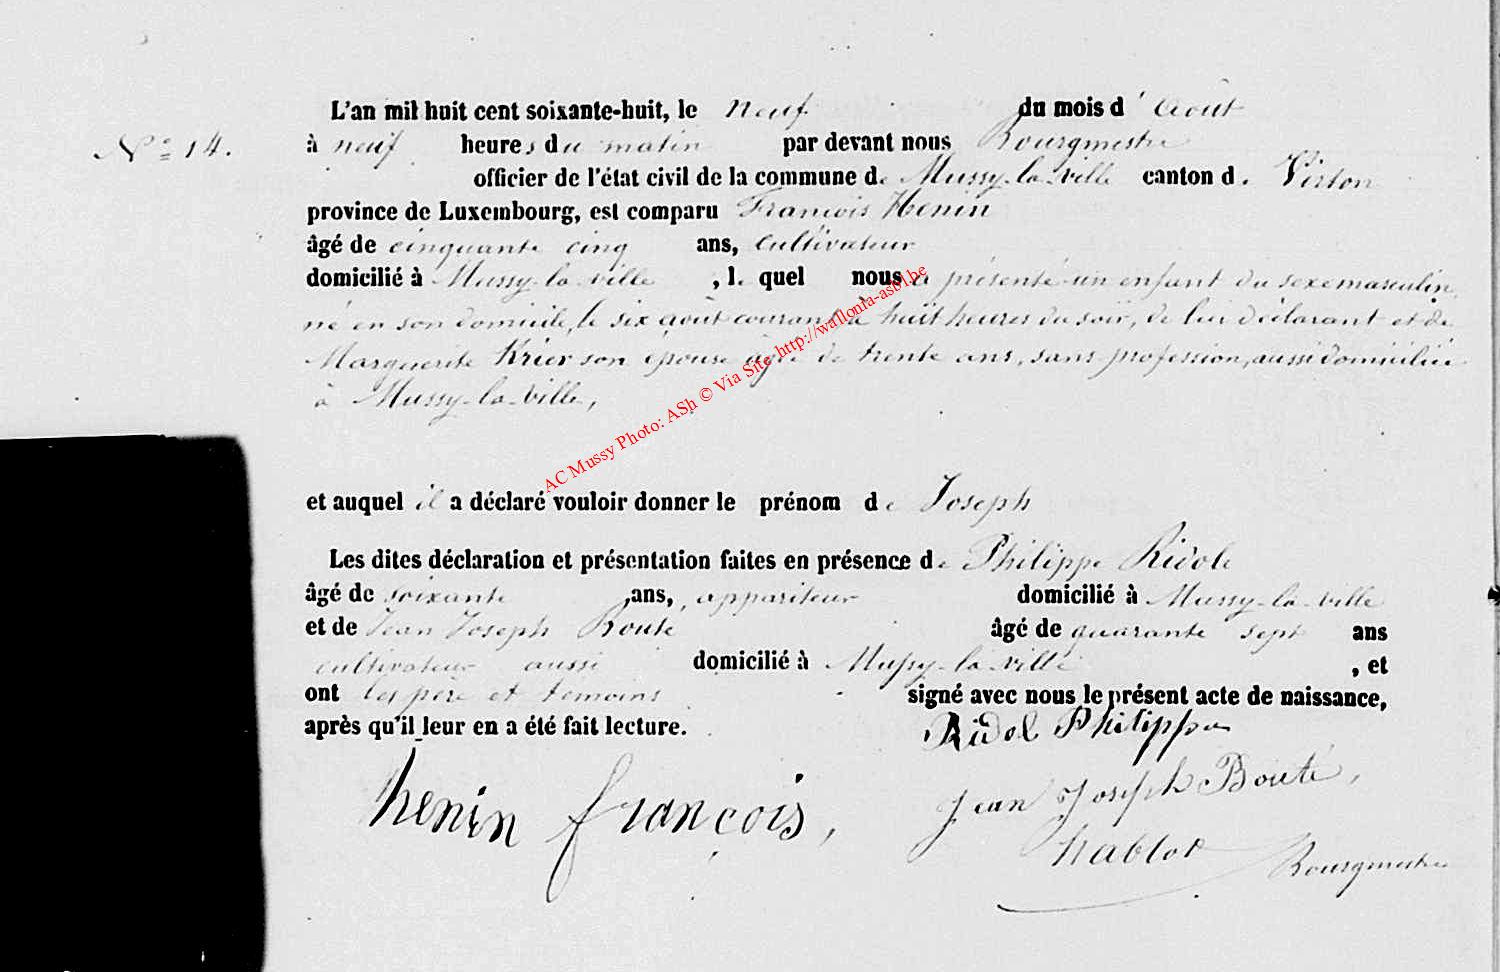 L'an mil huit cent soixante-huit, le neuf du mois d'Août
N° 14. à neuf heures du matin par devant nous Bourgmestre
officier de l'état civil de la commune de Mussy-la-ville canton de Virton
province de Luxembourg, est comparu François Henin
âgé de cinquante cinq ans, Cultivateur
domicilié à Mussy-la-ville, lequel nous a présenté un enfant du sexe masculin
né en son domicile, le six août courant à huit heures du soir, de lui déclarant et de
Marguerite Krier son épouse âgée de trente ans, sans profession, aussi domiciliée
à Mussy-la-ville,
AC Mussy Photo: ASh © Via Site http://wallonia-asbl.be
et auquel il a déclaré vouloir donner le prénom de Joseph
Les dites déclaration et présentation faites en présence de Philippe Ridole
âgé de soixante ans, appariteur domicilié à Mussy-la-ville
et de Jean Joseph Bouté âgé de quarante sept ans
cultivateur aussi domicilié à Mussy-la-ville, et
ont les père et témoins signé avec nous le présent acte de naissance,
après qu'il leur en a été fait lecture.
Ridol Philippe
henin françois,
Jean Joseph Bouté,
hablot Bourgmestre